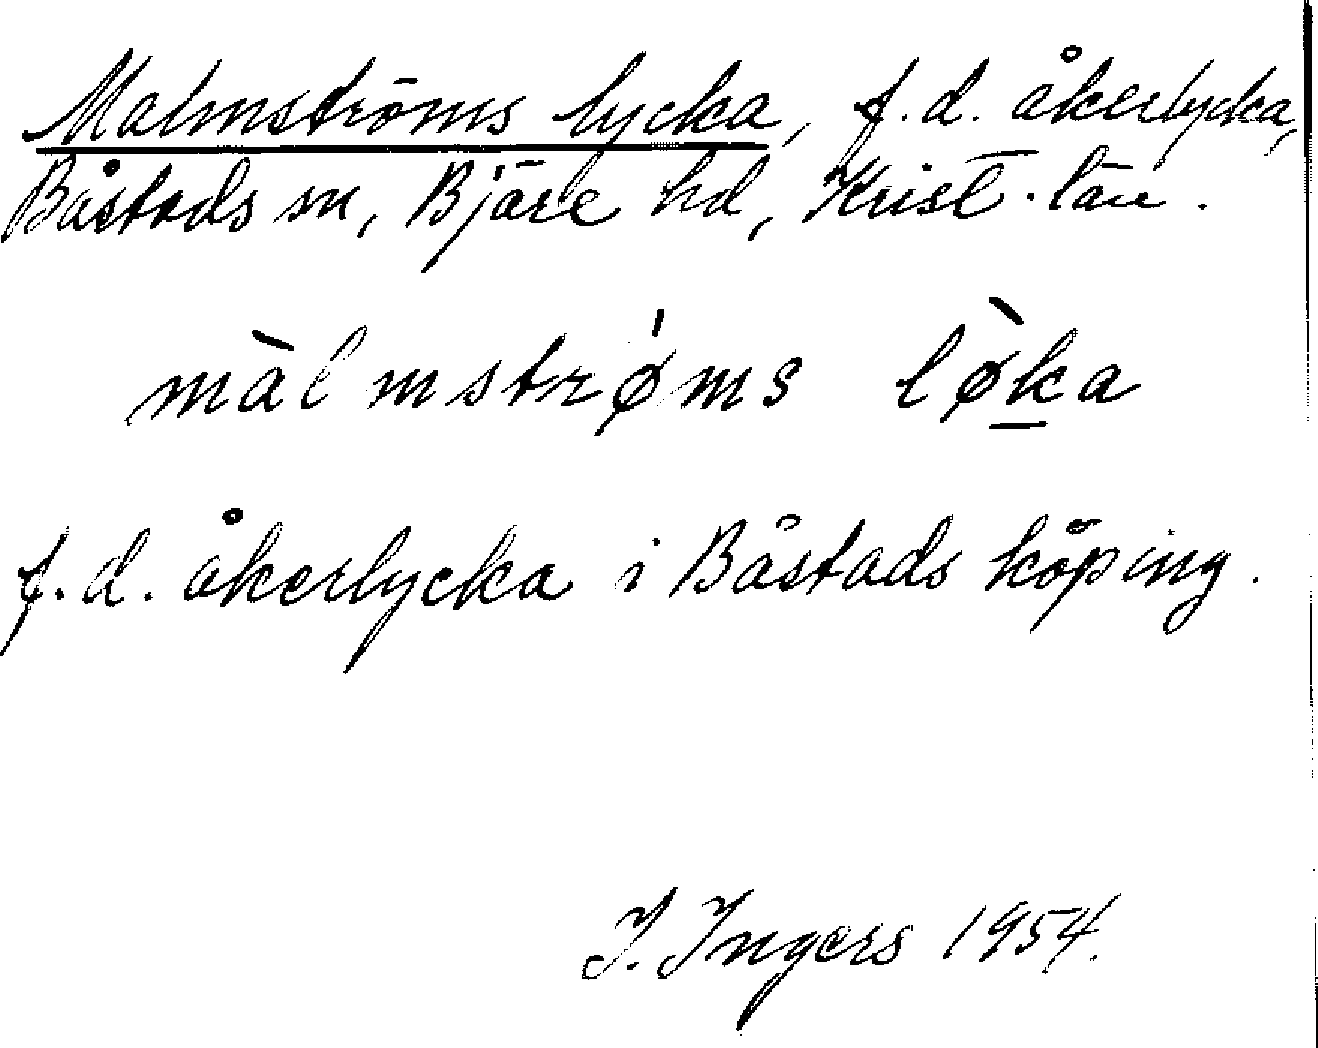 Malmströms lycka, f.d. åkerlycka,
Båstads sn, Bjäre hd, Krist. län.
màlmstrǿms lø̀ka
f.d. åkerlycka i Båstads köping.
I. Ingers 1954.